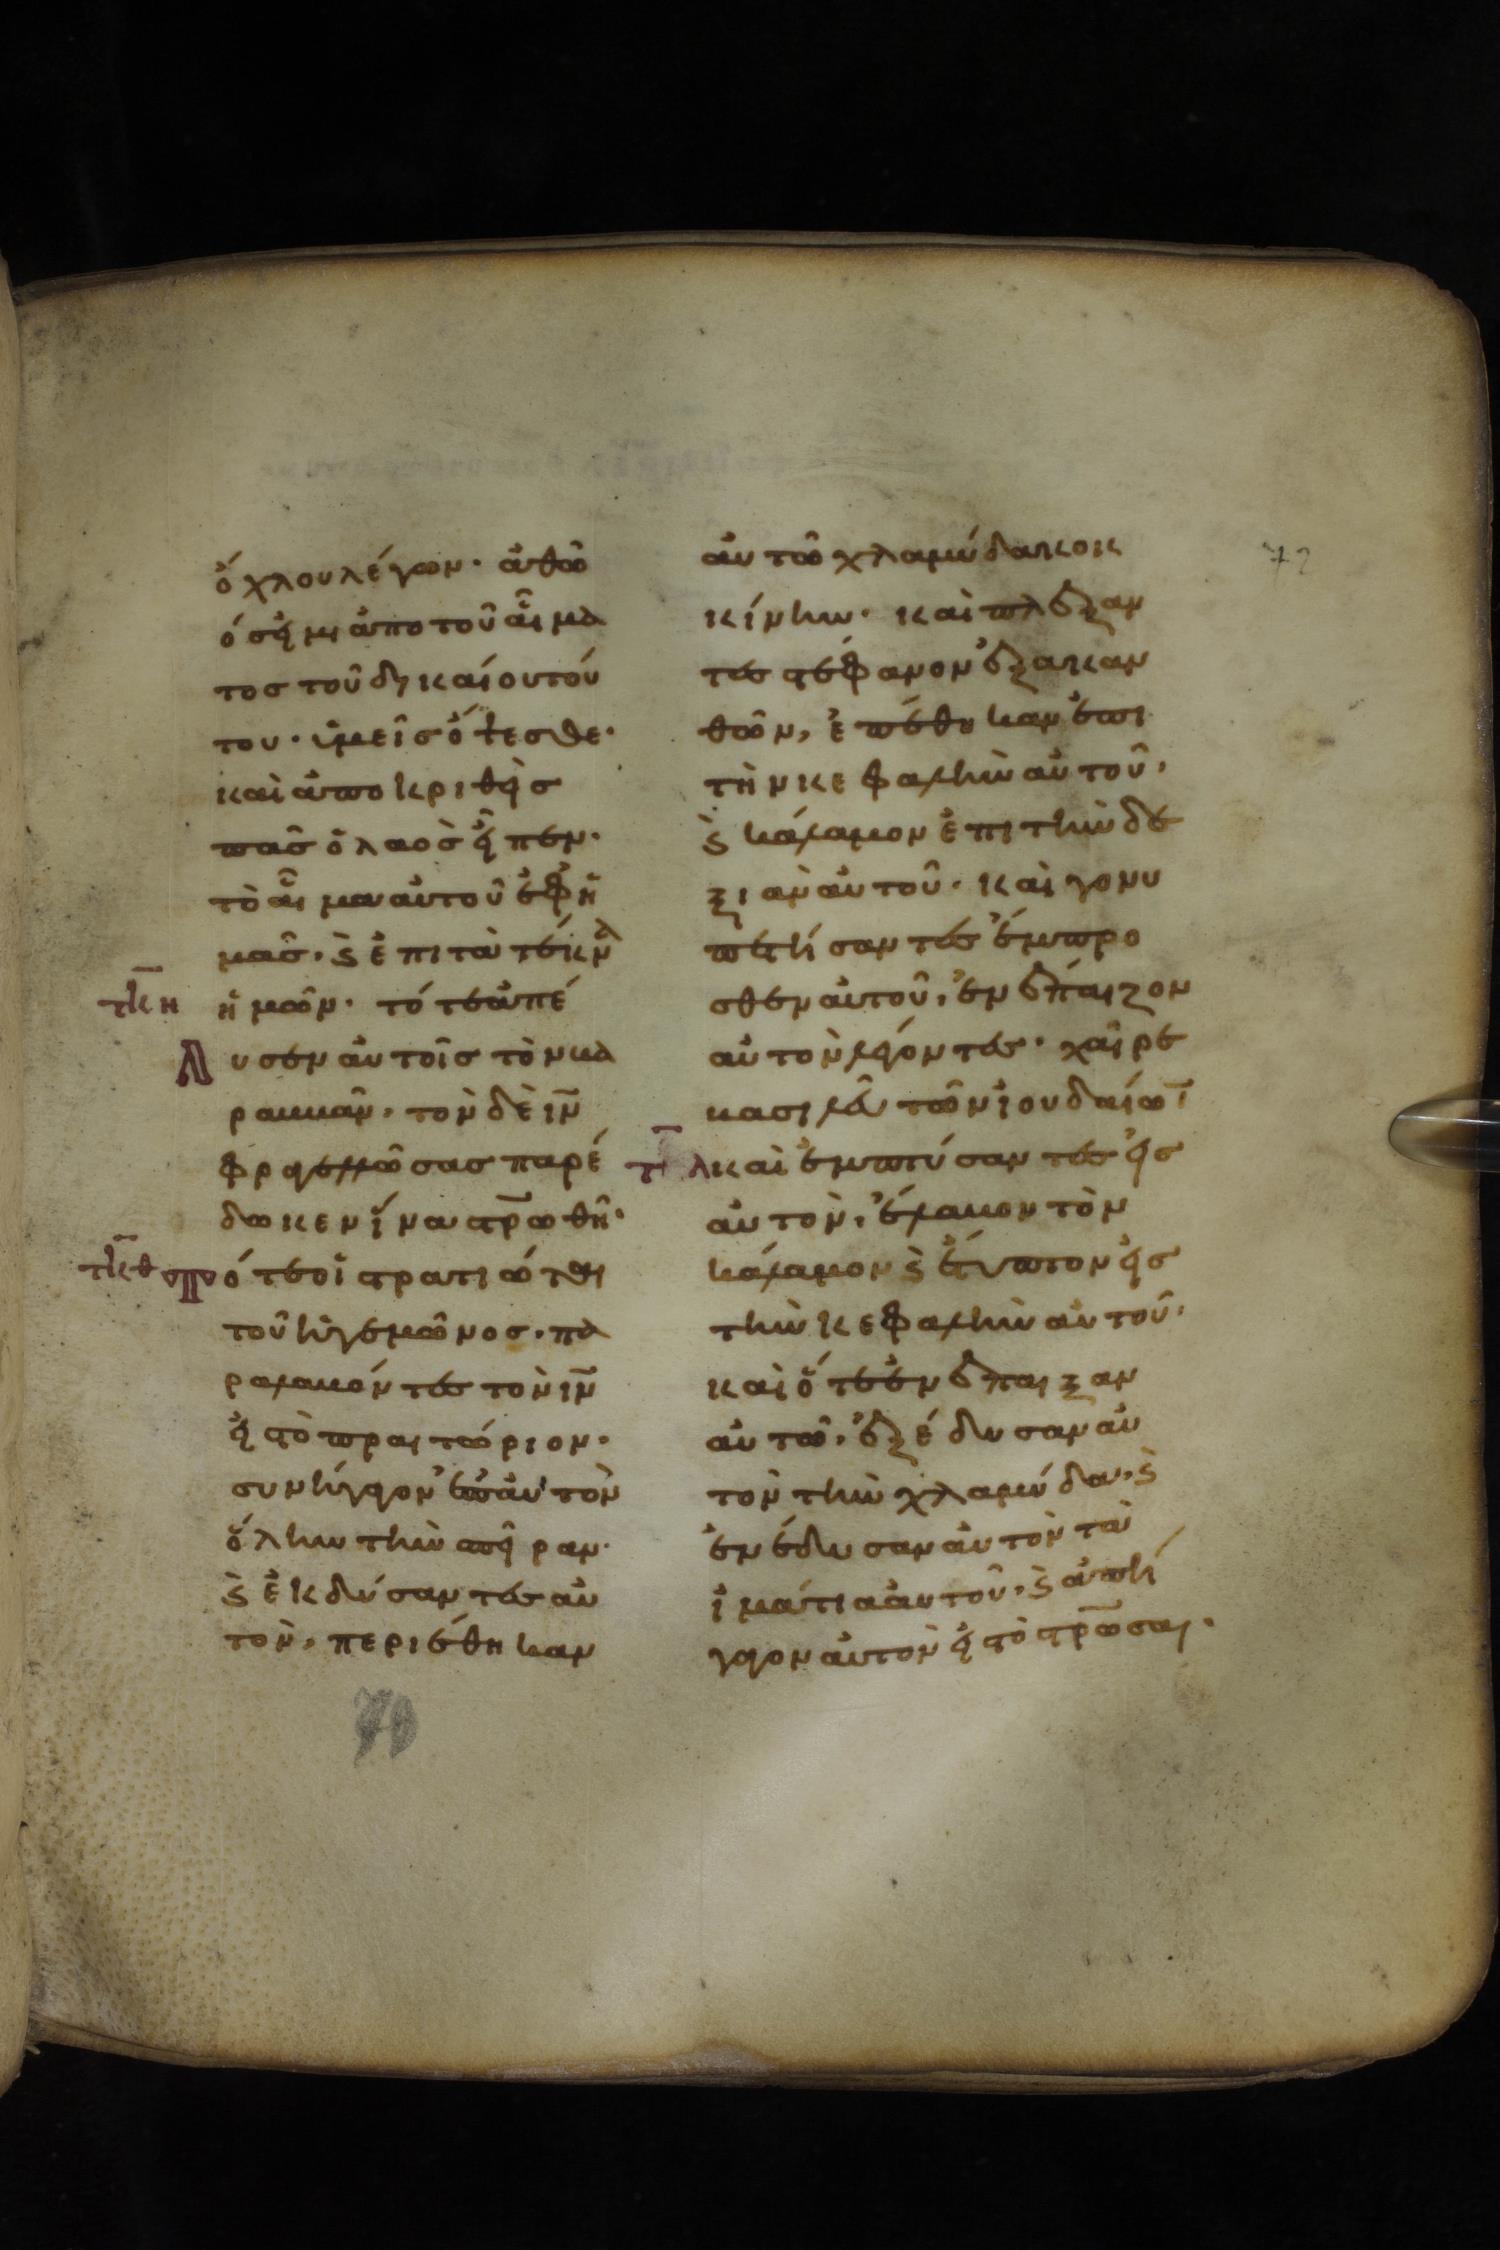 72
ὄχλου λέγων· ἀθῶ
ός εἰμι ἀπο τοῦ αἵμα
τος τοῦ δικαίου τού
του· ὑμεῖς ὄψεσθε·
καὶ ἀποκριθεὶς
πᾶς ὁ λαὸς εἶπεν·
τὸ αἷμα αὐτοῦ ἐφ ἡ
μᾶς, ϗ ἐπι τὰ τέκνα
τκη
ἡμῶν· τότε ἀπέ
λυσεν αὐτοῖς τὸν βα
ραββᾶν, τὸν δὲ ιν̅
φραγελλώσας παρέ
δωκεν ἵνα στρ̅ωθῆ·
τκθ
πότε οἱ στρατιῶται
τοῦ ἡγεμῶνος, πα
ραλαβόντες τὸν ιν̅
εἰς τὸ πραιτώριον·
συνήγαγον ἐπ αὐτὸν
ὅλην τὴν σπεῖραν·
ϗ ἐκδύσαντες αὐ
τὸν, περιέθηκαν
αὐτῶ χλαμύδα κοκ
κίνην· καὶ πλέξαν
τες στέφανον ἐξ ακαν
θῶν, ἐπέθηκαν ἐπι
τὴν κεφαλὴν αὐτοῦ,
ϗ κάλαμον ἐπι τὴν δε
ξιὰν αὐτοῦ· καὶ γονυ
πετήσαντες ἔμπρο
σθεν αὐτοῦ, ἐνέπαιζον
αὐτὸν λέγοντες· χαῖρε
βασιλεῦ τῶν ἰουδαίω̅
τλ
καὶ ἐμπτύσαντες εἰς
αὐτὸν, ἔλαβον τὸν
κάλαμον ϗ ἔτυπτον εἰς
τὴν κεφαλὴν αὐτοῦ,
καὶ ὅτε ἐνέπαιξαν
αὐτῶ, ἐξέδυσαν αὐ
τὸν τὴν χλαμύδα, ϗ
ἐνέδυσαν αὐτὸν τὰ
ἱμάτια αὐτοῦ, ϗ ἀπή
γαγον αὐτὸν εἰς τὸ στρ̅ωσαι·
70